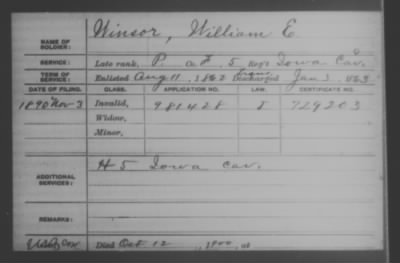 Winsor, William E.
NAME OF SOLDIER:
SERVICE: Late rank, P. 5 Reg't Iowa Cav.
TERM OF SERVICE: Enlisted Aug 11, 1862 Discharged Jan 3, 1863
DATE OF FILING. CLASS. APPLICATION NO. LAW. CERTIFICATE NO.
1890 Nov 3 Invalid, 981428 729203
Widow,
Minor,
H 5 Iowa Cav.
ADDITIONAL SERVICES:
REMARKS:
Died Oct 12, 1900, at